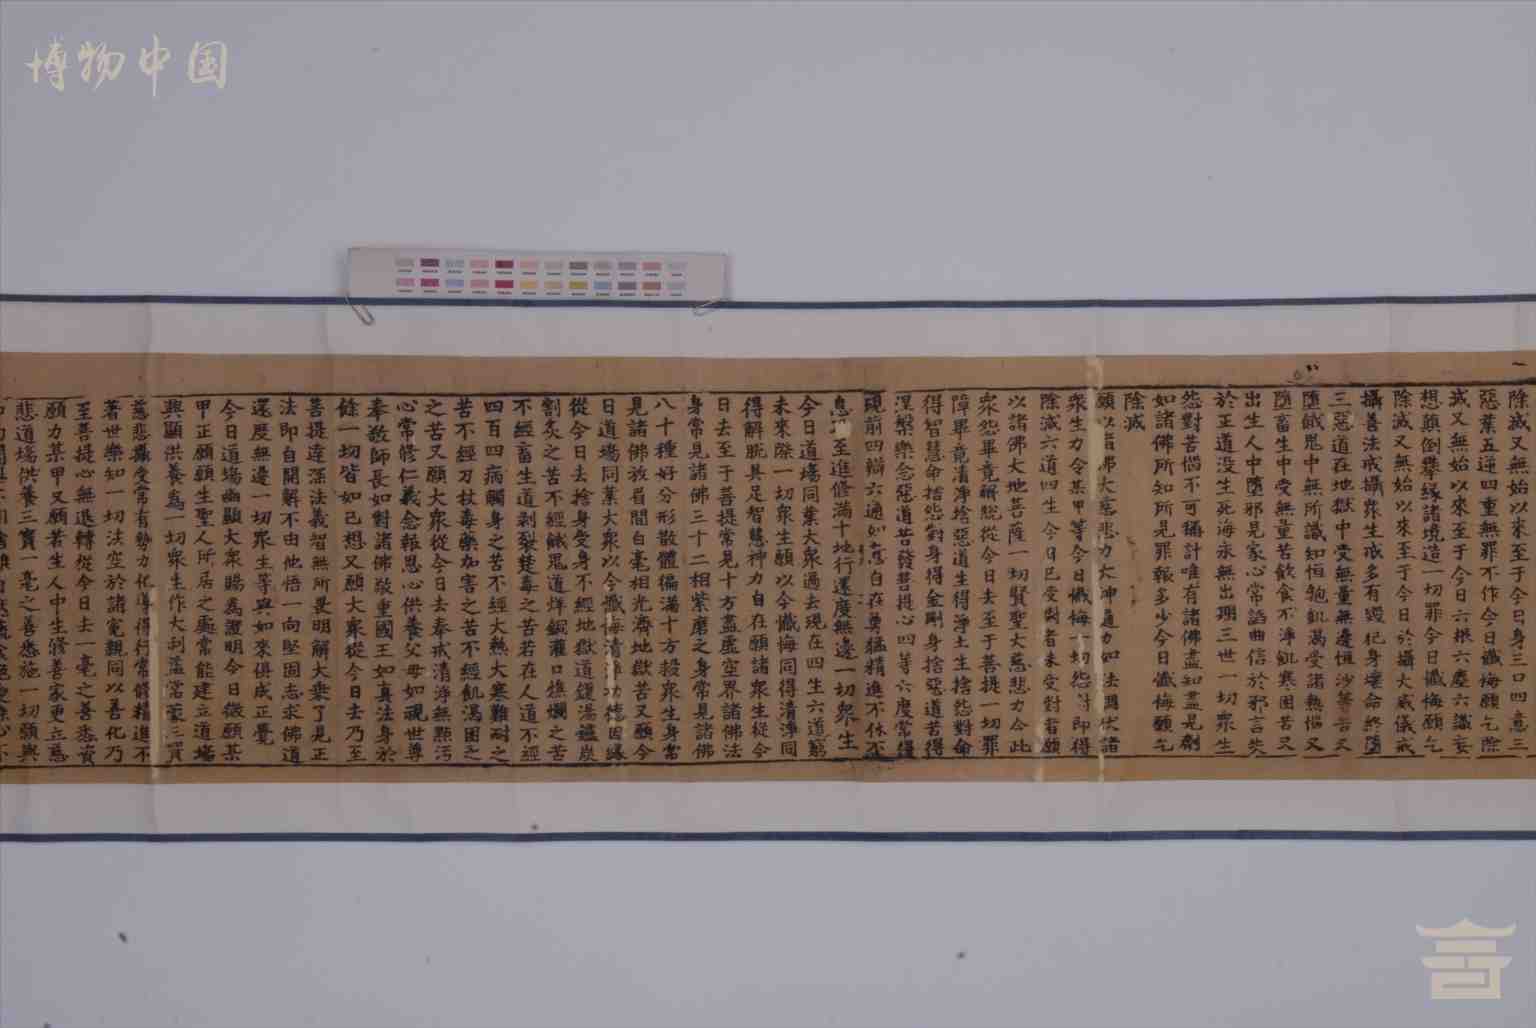 博物中国
除滅又無始以來至于今日身三口四意三
惡業五逆四重無罪不作今日懺悔願乞除
滅又無始以來至于今日六根六塵六識妄
想顛倒攀緣諸境造一切罪今日懺悔願乞
除滅又無始以來至于今日於攝大威儀戒
攝善法戒攝眾生戒多有毀犯身壞命終墮
三惡道在地獄中受無量無邊恒沙等苦又
墮餓鬼中無所識知恒飽飢渴受諸熱惱又
墮畜生中受無量苦飲食不淨飢寒困苦又
出生人中墮邪見家心常諂曲信於邪言失
於正道沒生死海永無出期三世一切眾生
怨對苦惱不可稱計唯有諸佛盡知盡見劑
如諸佛所知所見罪報多少今日懺悔願乞
除滅
願以諸佛大慈悲力大神通力如法調伏諸
眾生力令某甲等今日懺悔一切怨對即得
除滅六道四生今日已受對者未受對者願
以諸佛大地菩薩一切賢聖大慈悲力令此
眾怨畢竟解脫從今日去至于菩提一切罪
障畢竟清淨捨惡道生得淨土生捨怨對命
得智慧命捨怨對身得金剛身捨惡道苦得
涅槃樂念惡道苦發菩提心四等六度常得
現前四辯六通如意自在勇猛精進不休不
息 至進修滿十地行還度無邊一切眾生
今日道場同業大眾過去現在四生六道窮
未來際一切眾生願以今懺悔同得清淨同
得解脫具足智慧神力自在願諸眾生從今
日去至于菩提常見十方盡虛空界諸佛法
身常見諸佛三十二相紫磨之身常見諸佛
八十種好分形散體徧滿十方救眾生身常
見諸佛放眉間白毫相光濟地獄苦又願今
日道場同業大眾以今懺悔清淨功德因緣
從今日去捨身受身不經地獄道鑊湯爐炭
割炙之苦不經餓鬼道烊銅灌口燋爛之苦
不經畜生道剝裂楚毒之苦若在人道不經
四百四病觸身之苦不經大熱大寒難耐之
苦不經刀杖毒藥加害之苦不經飢渴困乏
之苦又願大眾從今日去奉戒清淨無點污
心常修仁義念報恩心供養父母如視世尊
奉敬師長如對諸佛敬重國王如真法身於
餘一切皆如己想又願大眾從今日去乃至
菩提達深法義智無所畏明解大乘了見正
法即自開解不由他悟一向堅固志求佛道
還度無邊一切眾生等與如來俱成正覺
今日道場幽顯大眾賜為證明今日微願某
甲正願願生聖人所居之處常能建立道場
興顯供養為一切眾生作大利益常蒙三寶
慈悲攝受常有勢力化導得行常修精進不
著世樂知一切法空於諸冤親同以善化乃
至菩提心無退轉從今日去一毫之善悉資
願力某甲又願若生人中生修善家更立慈
悲道場供養三寶一毫之善悉施一切願與